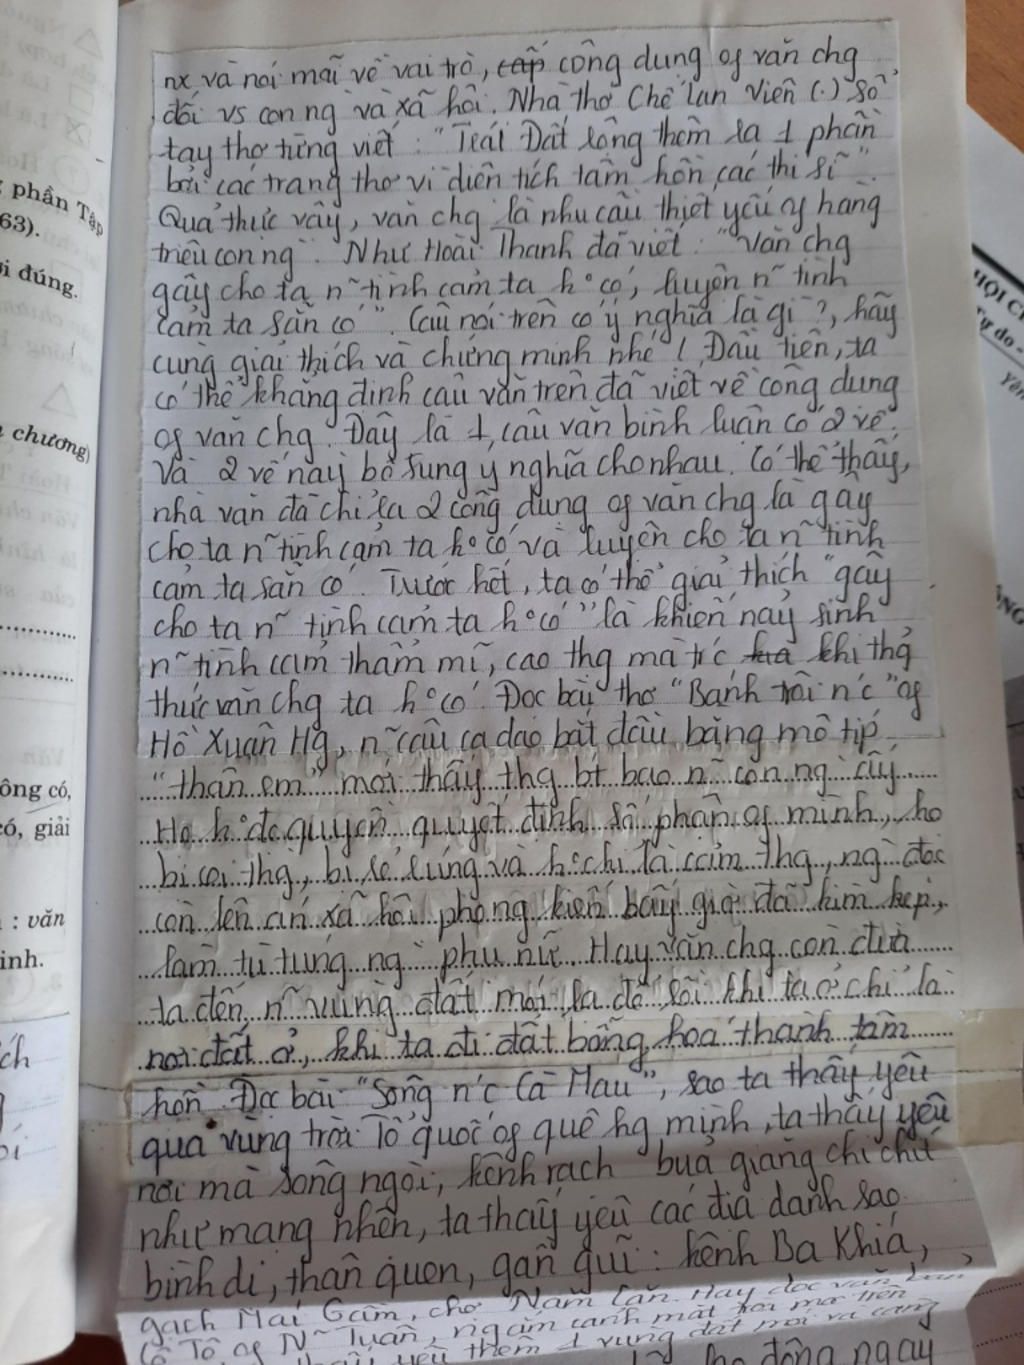 nx và nói mãi về vai trò, cấp công dụng of văn chg
đối vs con ng` và xã hội. Nhà thơ Chế Lan Viên (.) sổ
tay thơ từng viết : "Trái Đất rộng thêm ra 1 phần
bởi các trang thơ vì diện tích tâm hồn các thi sĩ".
Quả thực vậy, văn chg là nhu cầu thiết yếu of hàng
triệu con ng`. Như Hoài Thanh đã viết : "Văn chg
gây cho ta n~ tình cảm ta k° có, luyện n~ tình
cảm ta sẵn có". Câu nói trên có ý nghĩa là gì ?, hãy
cùng giải thích và chứng minh nhé ! Đầu tiên, ta
có thể khẳng định câu văn trên đã viết về công dụng
of văn chg. Đây là 1 câu văn bình luận có 2 vế.
Và 2 vế này bổ sung ý nghĩa cho nhau. Có thể thấy,
nhà văn đã chỉ ra 2 công dụng of văn chg là gây
cho ta n~ tình cảm ta k° có và luyện cho ta n~ tình
cảm ta sẵn có. Trước hết, ta có thể giải thích "gây
cho ta n~ tình cảm ta k° có" là khiến nảy sinh
n~ tình cảm thẩm mĩ, cao thg mà trc khi thg
thức văn chg ta k° có. Đọc bài thơ "Bánh trôi nc" of
Hồ Xuân Hg, n~ câu ca dao bắt đầu bằng mô típ
"thân em" mới thấy thg bt bao n~ con ng` ấy
Họ k° đc quyền quyết định số phận of mình, họ
bị coi thg, bị rẻ rúng và k° chỉ là cảm thg, ng` đọc
còn lên án xã hội phong kiến bấy giờ đã kìm kẹp,
làm tù túng ng` phụ nữ. Hay văn chg còn đưa
ta đến n~ vùng đất mới, ra đó rồi khi ta ở chỉ là
nơi đất ở, khi ta đi đất bỗng hoá thành tâm
hồn. Đọc bài "Sông nc Cà Mau", sao ta thấy yêu
quá vùng trời Tổ quốc of quê hg mình, ta thấy yêu
nơi mà sông ngòi, kênh rạch bủa giăng chi chít
như mạng nhện, ta thấy yêu các địa danh sao
bình dị, thân quen, gần gũi : kênh Ba Khía,
rạch Mái Giầm, chợ Năm Căn. Hay đọc văn bản
Cô Tô of N~ Tuân, ngắm cảnh mặt trời mọc trên
yêu thêm 1 vùng đất mới và càng
động ngay
phần Tập
63).
i đúng.
chương)
ông có,
có, giải
: văn
inh.
ch
HỘI C
Tự do -